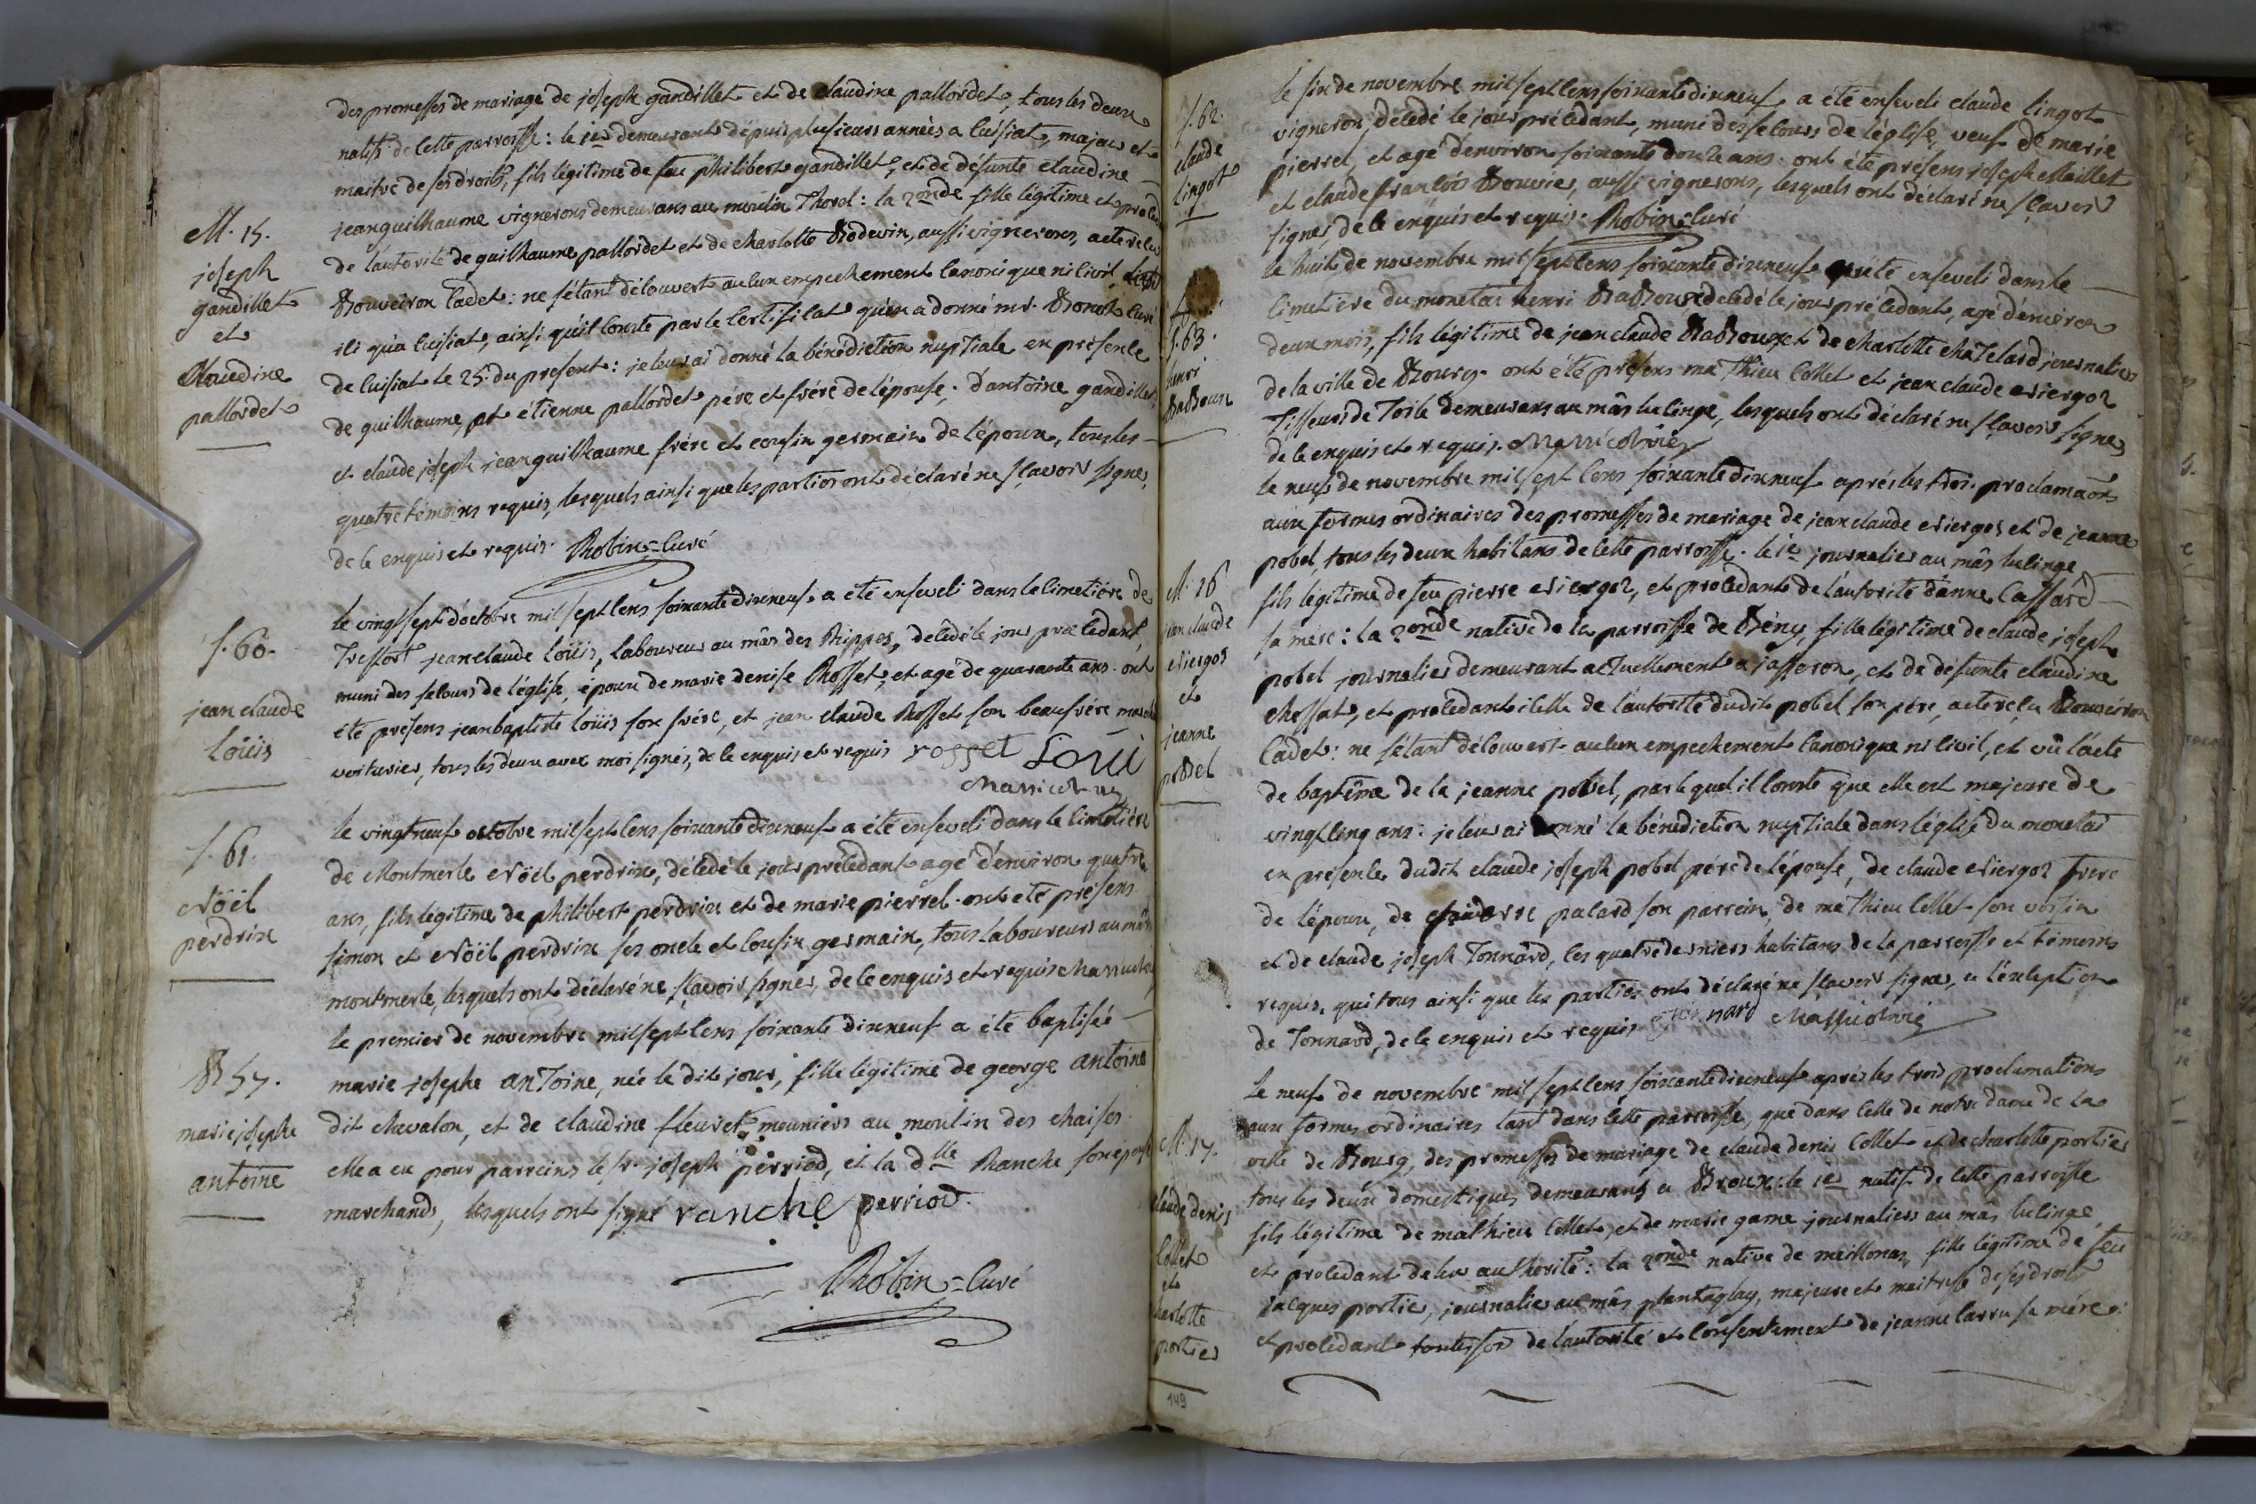 des promesses de mariage de joseph gandillet et de claudine pallordet, tous les deux
natifs de cette parroisse : le 1er demeurant depuis plusieurs années a cuisiat, majeur et
maitre de ses droits, fils légitime de feu philibert gandillet, et de défunte claudine
jeanguilhaume vignerons demeurans au moulin Thorel : la 2onde fille légitime et
de l'autorité de guilhaume pallordet et de charlotte Bodevin, aussi vignerons, acte recu
Bouveiron Cadet : ne s'étant découvert aucun empechement canonique ni civil,
ici qu'a cuisiat, ainsi qu'il conste par le certificat qu'en a donné mr. Bonot curé
de cuisiat le 25. du present : je leur ai donné la bénédiction nuptiale en présence
de guilhaume, et étienne pallordet pére et frére de l'épouse, d'antoine gandillet
et claude joseph jeanguilhaume frére et cousin germain de l'époux, tous les
quatre témoins requis, lesquels ainsi que les parties ont déclaré ne sçavoir signer,
de ce enquis et requis. Robin = curé
M. 15.
joseph
gandillet
et
Claudine
pallordet
le vingt sept d'octobre mil sept cens soixante dixneuf a été enseveli dans le cimetiére de
Treffort jean claude loüis, laboureur au mâs des Rippes, décédé le jour précédant,
muni des secours de l'église, époux de marie denise Rosset, et agé de quarante ans. ont
été présens jean baptiste loüis son frére, et jean claude Rosset son beaufrére
voiturier, tous les deux avec moi signés, de ce enquis et requis rosset Loui
S. 60.
jean claude
loüis
le vingtneuf octobre mil sept cens soixante dixneuf a été enseveli dans le cimetiére
de Montmerle Nöël perdrix, décédé le jour précédant agé d'environ quatre
ans, fils légitime de philibert perdrix et de marie pierrel. ont été présens
simon et Nöël perdrix ses oncle et cousin germain, tous laboureurs au mâs
montmerle, lesquels ont déclaré ne sçavoir signer, de ce enquis et requis
S. 61.
Nöël
perdrix
le premier de novembre mil sept cens soixante dixneuf a été baptisée
marie josephe antoine, née le dit jour, fille légitime de george antoine
dit chevalon, et de claudine fleuret meuniers au moulin des chaises.
elle a eu pour parreins le sr. joseph perriod, et la dlle Ranche son épouse
marchands, lesquels ont signé ranche perriod
Robin = curé
B 57.
marie josephe
antoine
le six de novembre mil sept cens soixante dixneuf a été enseveli claude lingot
vigneron, décédé le jour précédant, muni des secours de l'église, veuf de marie
pierrel, et agé d'environ soixante douze ans. ont été présens joseph Maillet
et claude françois Bouvier, aussi vignerons, lesquels ont déclaré ne sçavoir
signer de ce enquis et requis. Robin = curé
S. 62.
claude
lingot
le huit de novembre mil sept cens soixante dixneuf a été enseveli dans le
cimetiere du monetai henri BaBoux décédé le jour précédant, agé d'environ
deux mois, fils légitime de jean claude BaBoux et de charlotte chatelard journaliers
de la ville de Bourg. ont été présens mathieu Collet et jean claude Niergoz
tisseurs de toile demeurans au mâs lucinge, lesquels ont déclaré ne sçavoir signer
de ce enquis et requis.
S. 63.
henri
BaBoux
le neuf de novembre mil sept cens soixante dixneuf aprés les trois proclamaõns
aux formes ordinaires des promesses de mariage de jean claude Niergoz et de jeanne
pobel, tous les deux habitans de cette parroisse. le 1er journalier au mâs lucinge
fils légitime de feu pierre Niergoz, et procédant de l'autorité d'anne Cassard
sa mére : la 2onde native de la parroisse de Bény fille légitime de claude joseph
pobel journalier demeurant actuellement a jasseron, et de défunte claudine
chossat, et procédant icelle de l'autorité dudit pobel son pére, acte reçu Bouveiron
Cadet : ne s'étant découvert aucun empechement canonique ni civil, et vû l'acte
de baptême de la jeanne pobel, par lequel il conste que elle est majeure de
vingt cinq ans : je leur ai donné la bénédiction nuptiale dans l'église du monetai
en présence dudit claude joseph pobel pére de l'épouse, de claude Niergoz frere
de l'époux, de pierre palard son parrein, de mathieu Collet son voisin
et de claude joseph Tonnard, les quatre derniers habitans de la parroisse et témoins
requis, qui tous ainsi que les parties ont déclaré ne sçavoir signer, a l'exception
de Tonnard, de ce enquis et requis Tonnard
M. 16
jean claude
Niergoz
et
jeanne
poBel
Le neuf de novembre mil sept cens soixante dixneuf aprés les trois proclamations
aux formes ordinaires tant dans cette parroisse, que dans celle de notre dame de la
ville de Bourg, des promesses de mariage de claude denis Collet et de charlotte portier
tous les deux domestiques demeurans a Broux : le 1er natif de cette parroisse
fils légitime de mathieu Collet, et de marie game journaliers au mâs lucinge
et procédant de leur authorité : la 2onde native de meillonas, fille légitime de feu
jacques portier, journalier au mâs plantaglay, majeure et maitresse de ses droits
et procédant toutesfois de l'autorité et consentement de jeanne larru sa mére.
M. 17.
claude denis
Collet
et
charlotte
portier
149